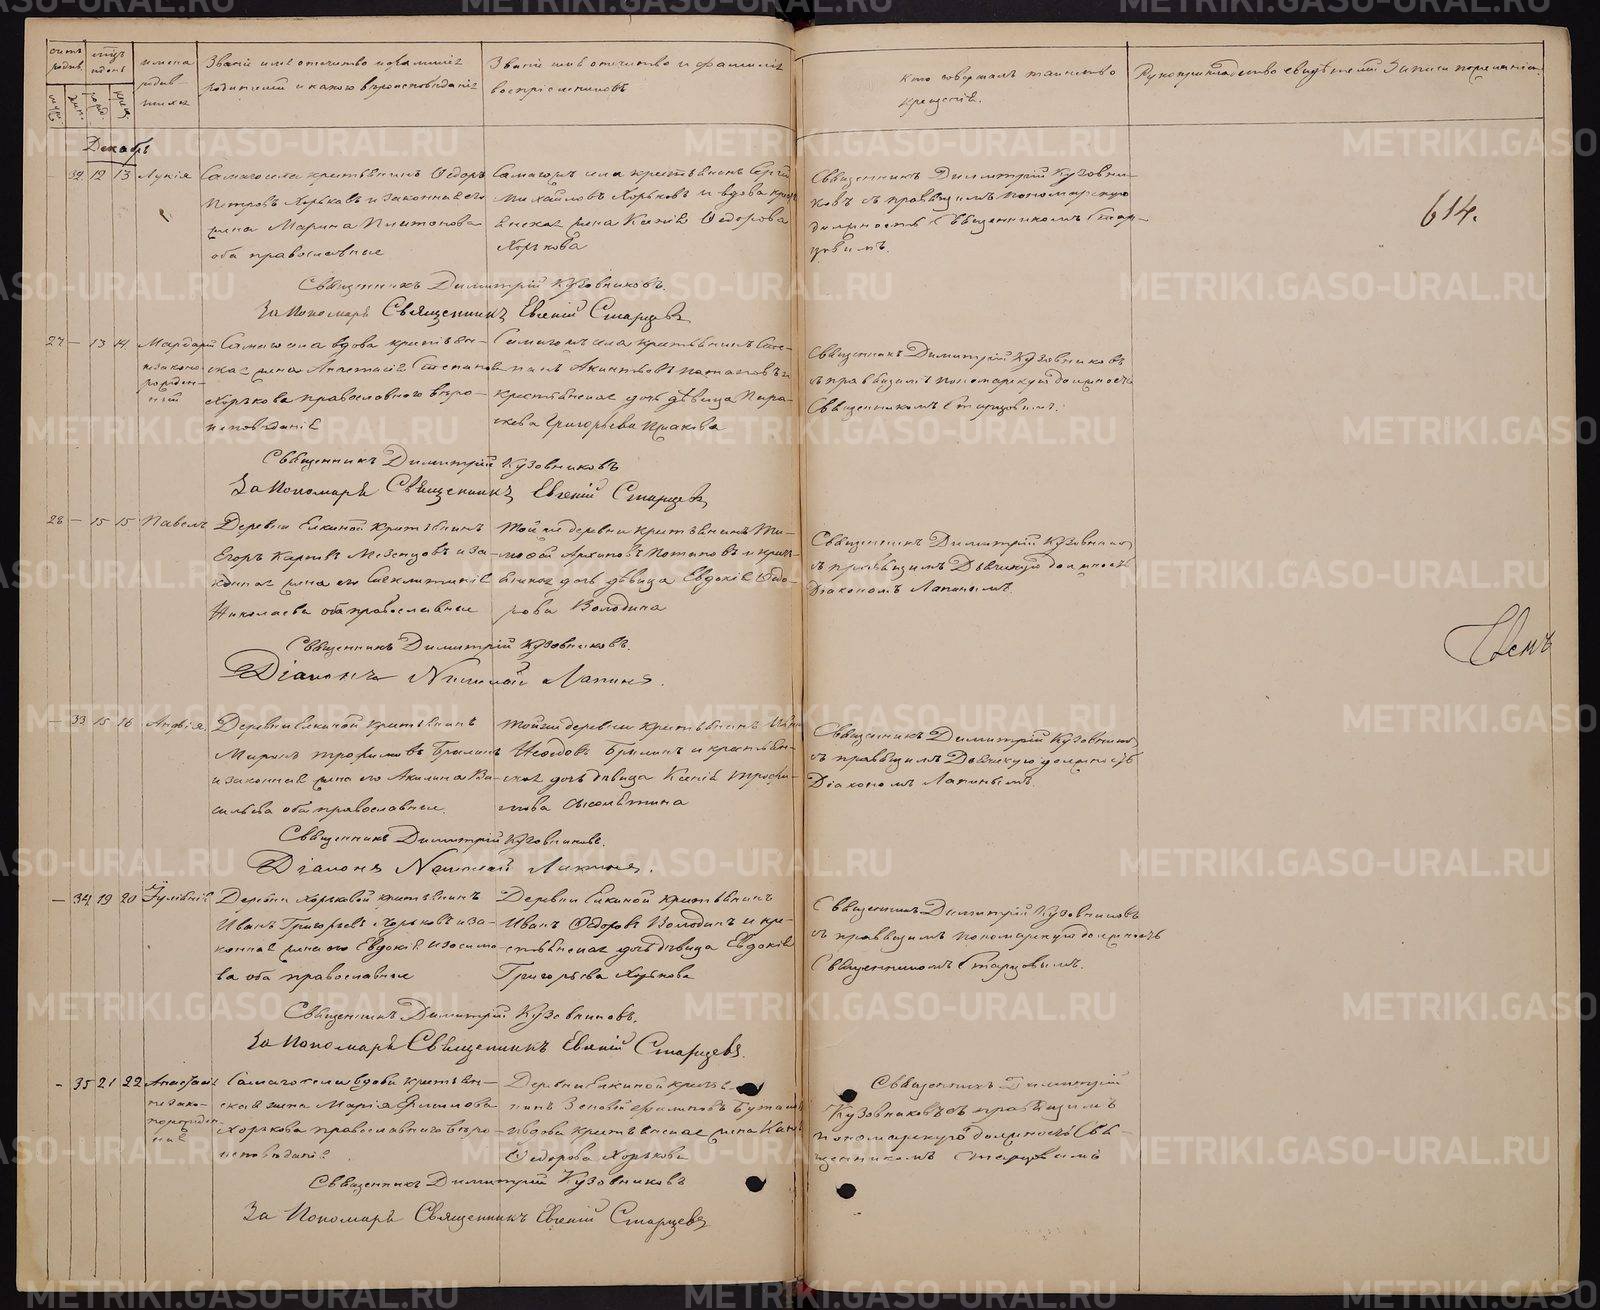 Счетъ родив.
Мѣсяцъ и день
имена родив-
шихся
Званіе имя отчество и фамиліе
родителей и какого вѣроисповѣданіе
Званіе имя отчество и фамиліе
воспріемниковъ
Кто совершалъ таинство
крещенія.
Рукоприкладство свидѣтелей записи по желанію
муж.
жен.
рожд.
крещ.
Декабрь
— 32 12 13 Лукія
Самаго села крестьянинъ Ѳедоръ
Петровъ Хорьковъ и законная его
жена Марина Платонова
оба православные
Самагожъ села крестьянинъ Сергій
Михайловъ Хорьковъ и вдова крест
янская жена Ксенія Ѳедорова
Хорькова
Священникъ Димитрій Кузовни-
ковъ съ правящимъ пономарскую
должность Священникомъ Стар-
цовымъ.
614.
Священникъ Димитрій Кузовниковъ.
За Пономаря Священникъ Евгеній Старцевъ
27 — 13 14 Мардарій
незаконо
рожден-
ный
Самаго села вдова крестьян-
ская жена Анастасія Степанова
Хорькова православного вѣро-
исповѣданія
Самагожъ села крестьянинъ Сте-
панъ Акинтьевъ Потаповъ и
крестьянская дочь дѣвица Пара-
скева Григорьева
Священникъ Димитрій Кузовниковъ
съ правящимъ пономарскую должность
Священникомъ Старцовымъ.
Священникъ Димитрій Кузовниковъ
За Пономаря Священникъ Евгеній Старцевъ
28 — 15 15 Павелъ
Деревни Елкиной крестьянинъ
Егоръ Карповъ Мезенцовъ и за-
конная жена его Секлитинія
Николаева оба православные
Той же деревни крестьянинъ Ти-
мофей Архиповъ Потаповъ и крест
янская дочь дѣвица Евдокія Ѳедо-
рова Володина
Священникъ Димитрій Кузовников
съ правящимъ Дьячкую должность
Діакономъ Лапинымъ.
Священникъ Димитрій Кузовниковъ.
Діаконъ Николай Лапинъ.
— 33 15 16 Анфія
Деревни Елкиной крестьянинъ
Миронъ Трофимовъ Брылинъ
и законная жена его Акилина Ва-
сильева оба православные.
Той же деревни крестьянинъ Иванъ
Нефедовъ Брылинъ и крестьян-
ская дочь дѣвица Ксенія Трофи-
мова
Священникъ Димитрій Кузовников
съ правящимъ Дьячкую должность
Діакономъ Лапинымъ.
Священникъ Димитрій Кузовниковъ.
Діаконъ Николай Лапинъ.
— 34 19 20 Іуліанія
Деревни Хорьковой крестьянинъ
Иванъ Григорьевъ Хорьковъ и за-
конная жена его Евдокія Изосимо-
ва оба православные
Деревни Елкиной крестьянинъ
Иванъ Ѳедоровъ Володинъ и кре-
стьянская дочь дѣвица Евдокія
Григорьева Хорькова
Священникъ Димитрій Кузовниковъ
съ правящимъ пономарскую должность
Священникомъ Старцовымъ.
Священникъ Димитрій Кузовниковъ.
За Пономаря Священникъ Евгеній Старцевъ.
— 35 21 22 Анастасія
незако-
норожден-
ная
Самаго села вдова крестьян-
ская жена Марія Филипова
Хорькова православного вѣро-
исповѣданія
Деревни Елкиной крестья-
нинъ Зеновій Филиповъ
и вдова крестьянская жена Ксенія
Ѳедорова Хорькова
Священникъ Димитрій
Кузовниковъ съ правящимъ
пономарскую должность Свя-
щенникомъ Старцовымъ
Священникъ Димитрій Кузовниковъ
За Пономаря Священникъ Евгеній Старцевъ
METRIKI.GASO-URAL.RU